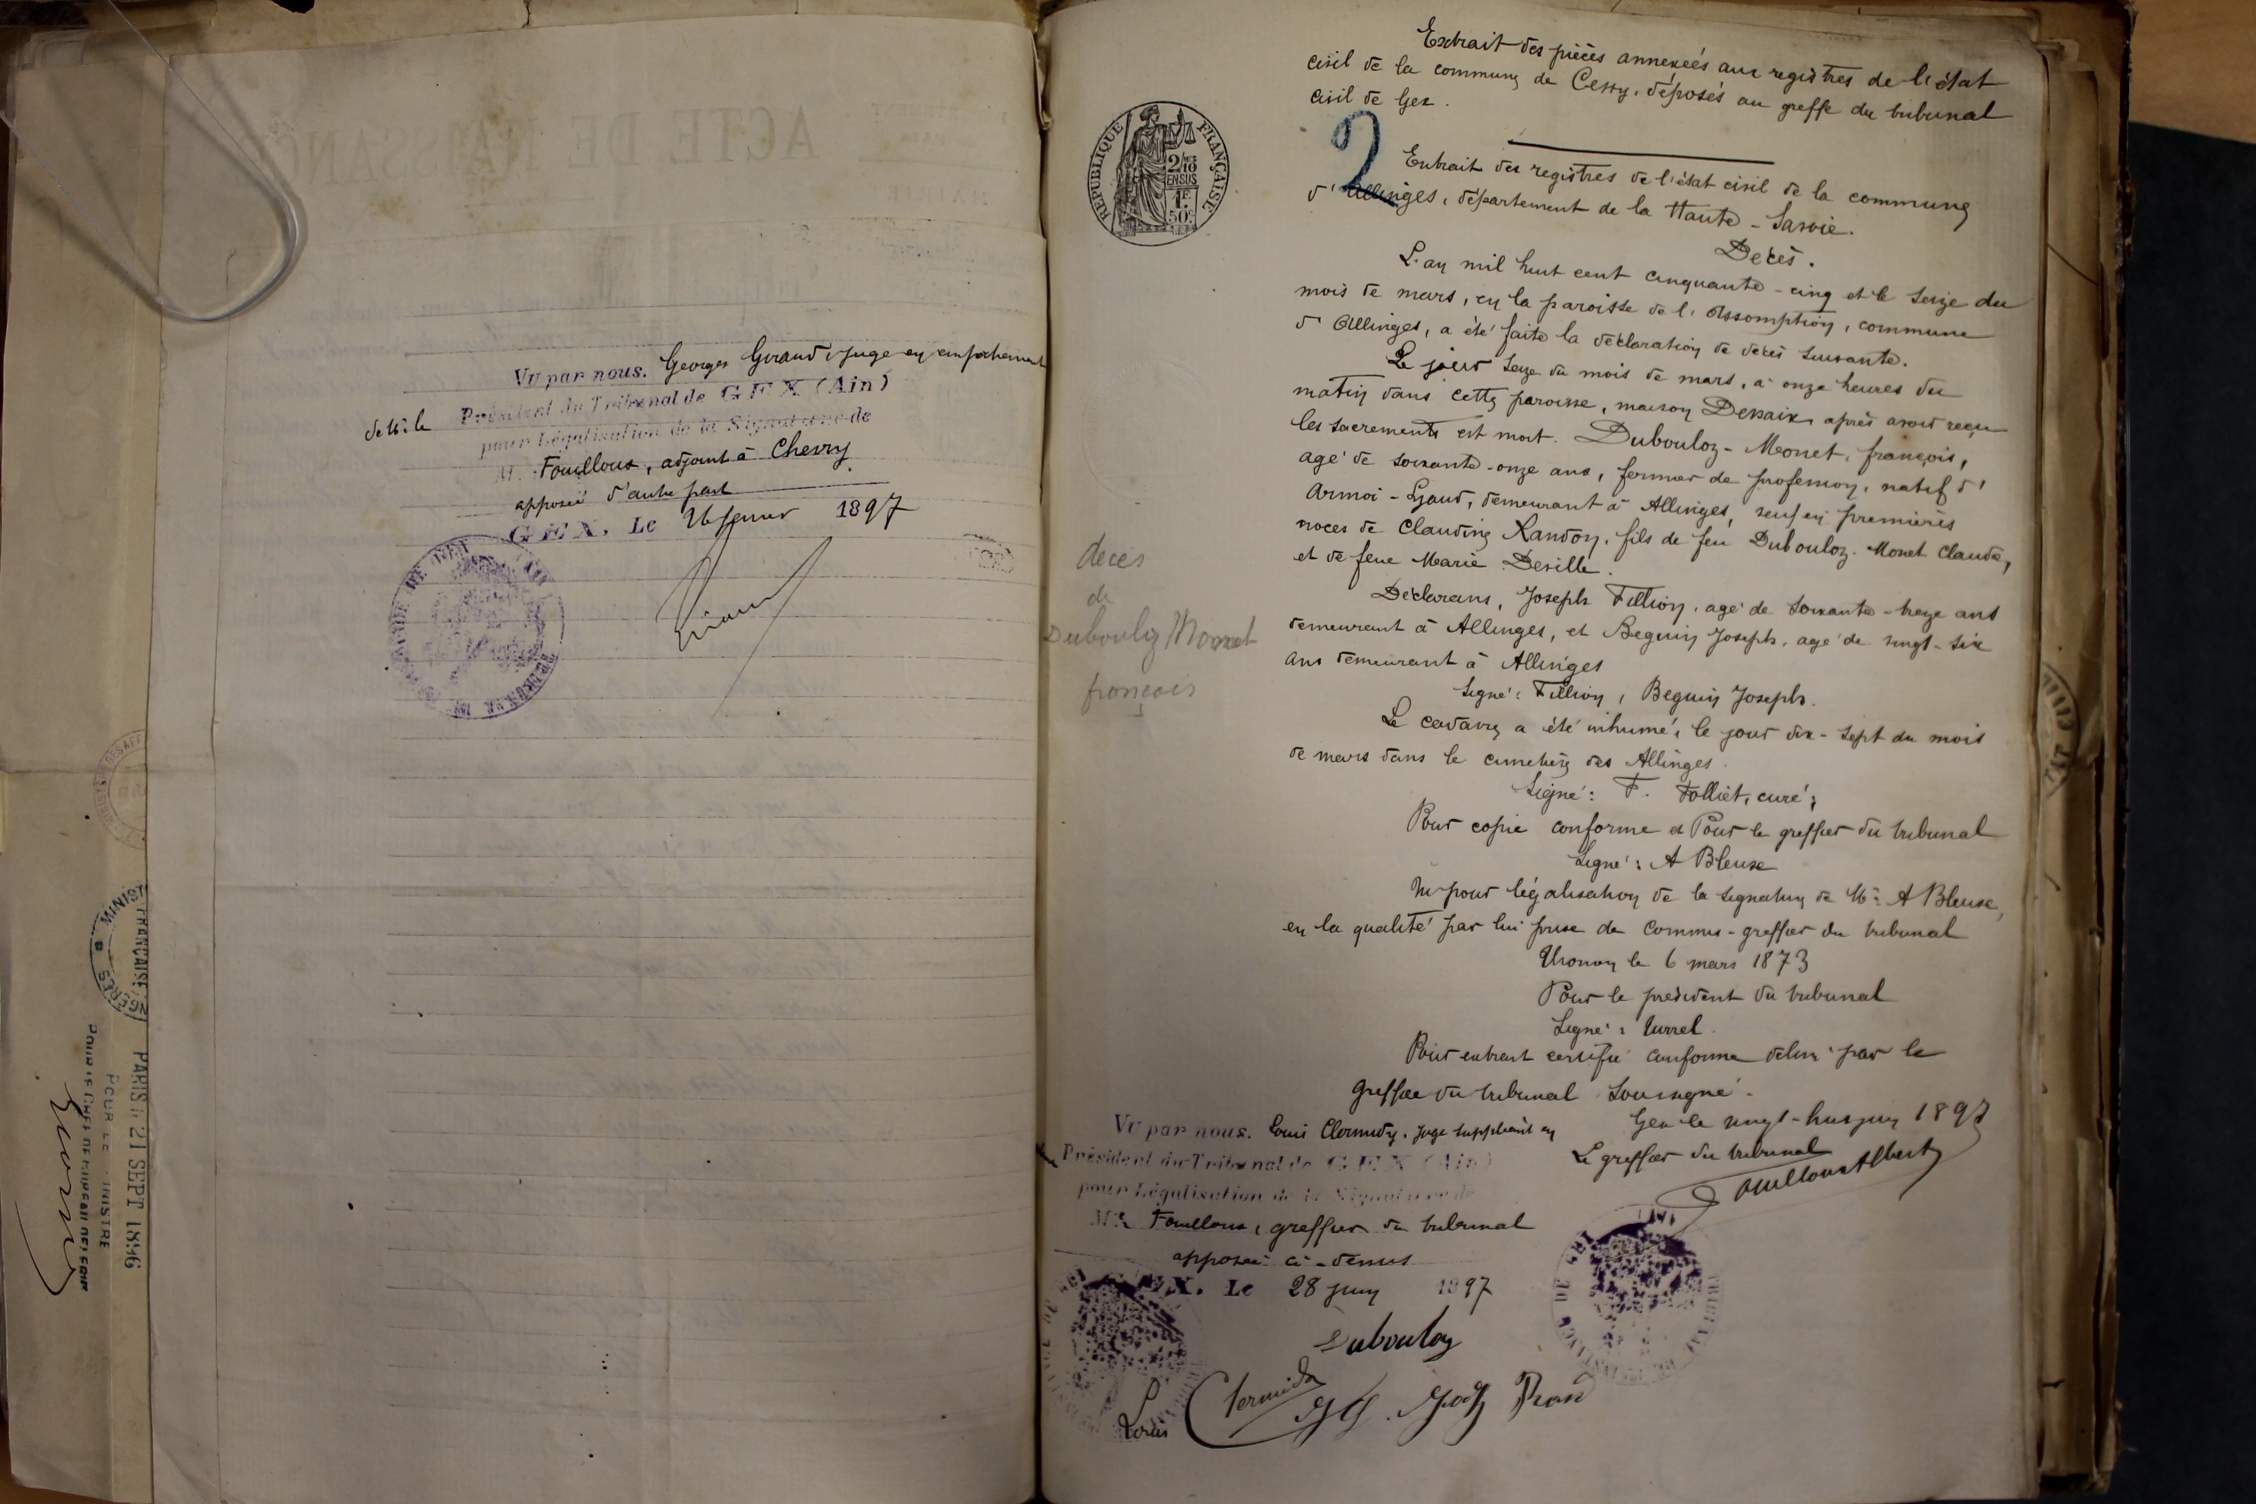 Vu par nous. Georges Girand, juge en empêchement
de Mr le Président du Tribunal de GEX (Ain)
pour Légalisation de la Signature de
M. Fouilloux, adjoint à Chevry
apposée d'autre part
GEX, Le 26 janvier 1897
MINIST
FRANÇAISE
PARIS, 21 SEPT 1896
POUR LE MINISTRE
POUR LE CHEF DE BUREAU DÉLÉGUÉ
RÉPUBLIQUE FRANÇAISE
2/10 EN SUS
1F 50C
2
Extrait des pièces annexées aux registres de l'état
civil de la commune de Cessy, déposés au greffe du tribunal
civil de Gex.
Extrait des registres de l'état civil de la commune
d'Allinges, département de la Haute-Savoie.
Décès.
L'an mil huit cent cinquante-cinq et le seize du
mois de mars, en la paroisse de l'Assomption, commune
d'Allinges, a été faite la déclaration de décès suivante.
Le jour seize du mois de mars, à onze heures du
matin dans cette paroisse, maison Dessaix après avoir reçu
les sacrements est mort. Dubouloz-Monet, françois,
agé de soixante-onze ans, fermier de profession, natif d'
Armoi-Lyaud, demeurant à Allinges, veuf en premières
noces de Claudine Randon, fils de feu Dubouloz-Monet Claude,
et de feue Marie Deville.
Déclarans, Joseph Fillion, agé de soixante-treize ans
demeurant à Allinges, et Beguin Joseph, agé de vingt-six
ans demeurant à Allinges
Signé: Fillion, Beguin Joseph.
Le cadavre a été inhumé, le jour dix-sept du mois
de mars dans le cimetière des Allinges.
Signé: F. Folliet, curé;
Pour copie conforme et Pour le greffier du tribunal
Signé: A Bleuse
Vu pour légalisation de la signature de Mr A Bleuse,
en la qualité par lui prise de commis-greffier du tribunal
Thonon le 6 mars 1873
Pour le président du tribunal
Signé: Turrel
Pour extrait certifié conforme délivré par le
Greffier du tribunal soussigné.
Gex le vingt-huit juin 1897
Le greffier du tribunal
Fouilloux Albert
décès
de
Dubouloz Monnet
françois
Vu par nous. Louis Clermidy, juge suppléant en
Président du Tribunal de GEX (Ain)
pour Légalisation de la Signature de
Mr Fouilloux, greffier du tribunal
apposée ci-dessus
GEX, Le 28 juin 1897
Dubouloz
Louis Clermidy